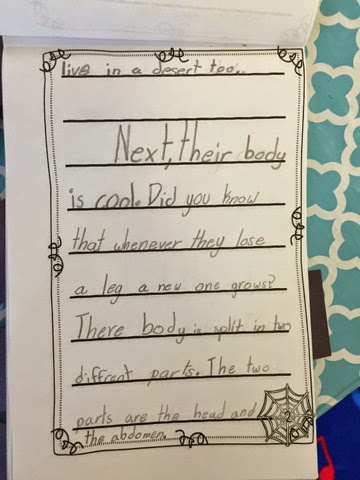 live in a desert too..
Next, their body
is cool. Did you know
that whenever they lose
a leg a new one grows?
There body is split in two
diffrent parts. The two
parts are the head and
the abdomen.
2